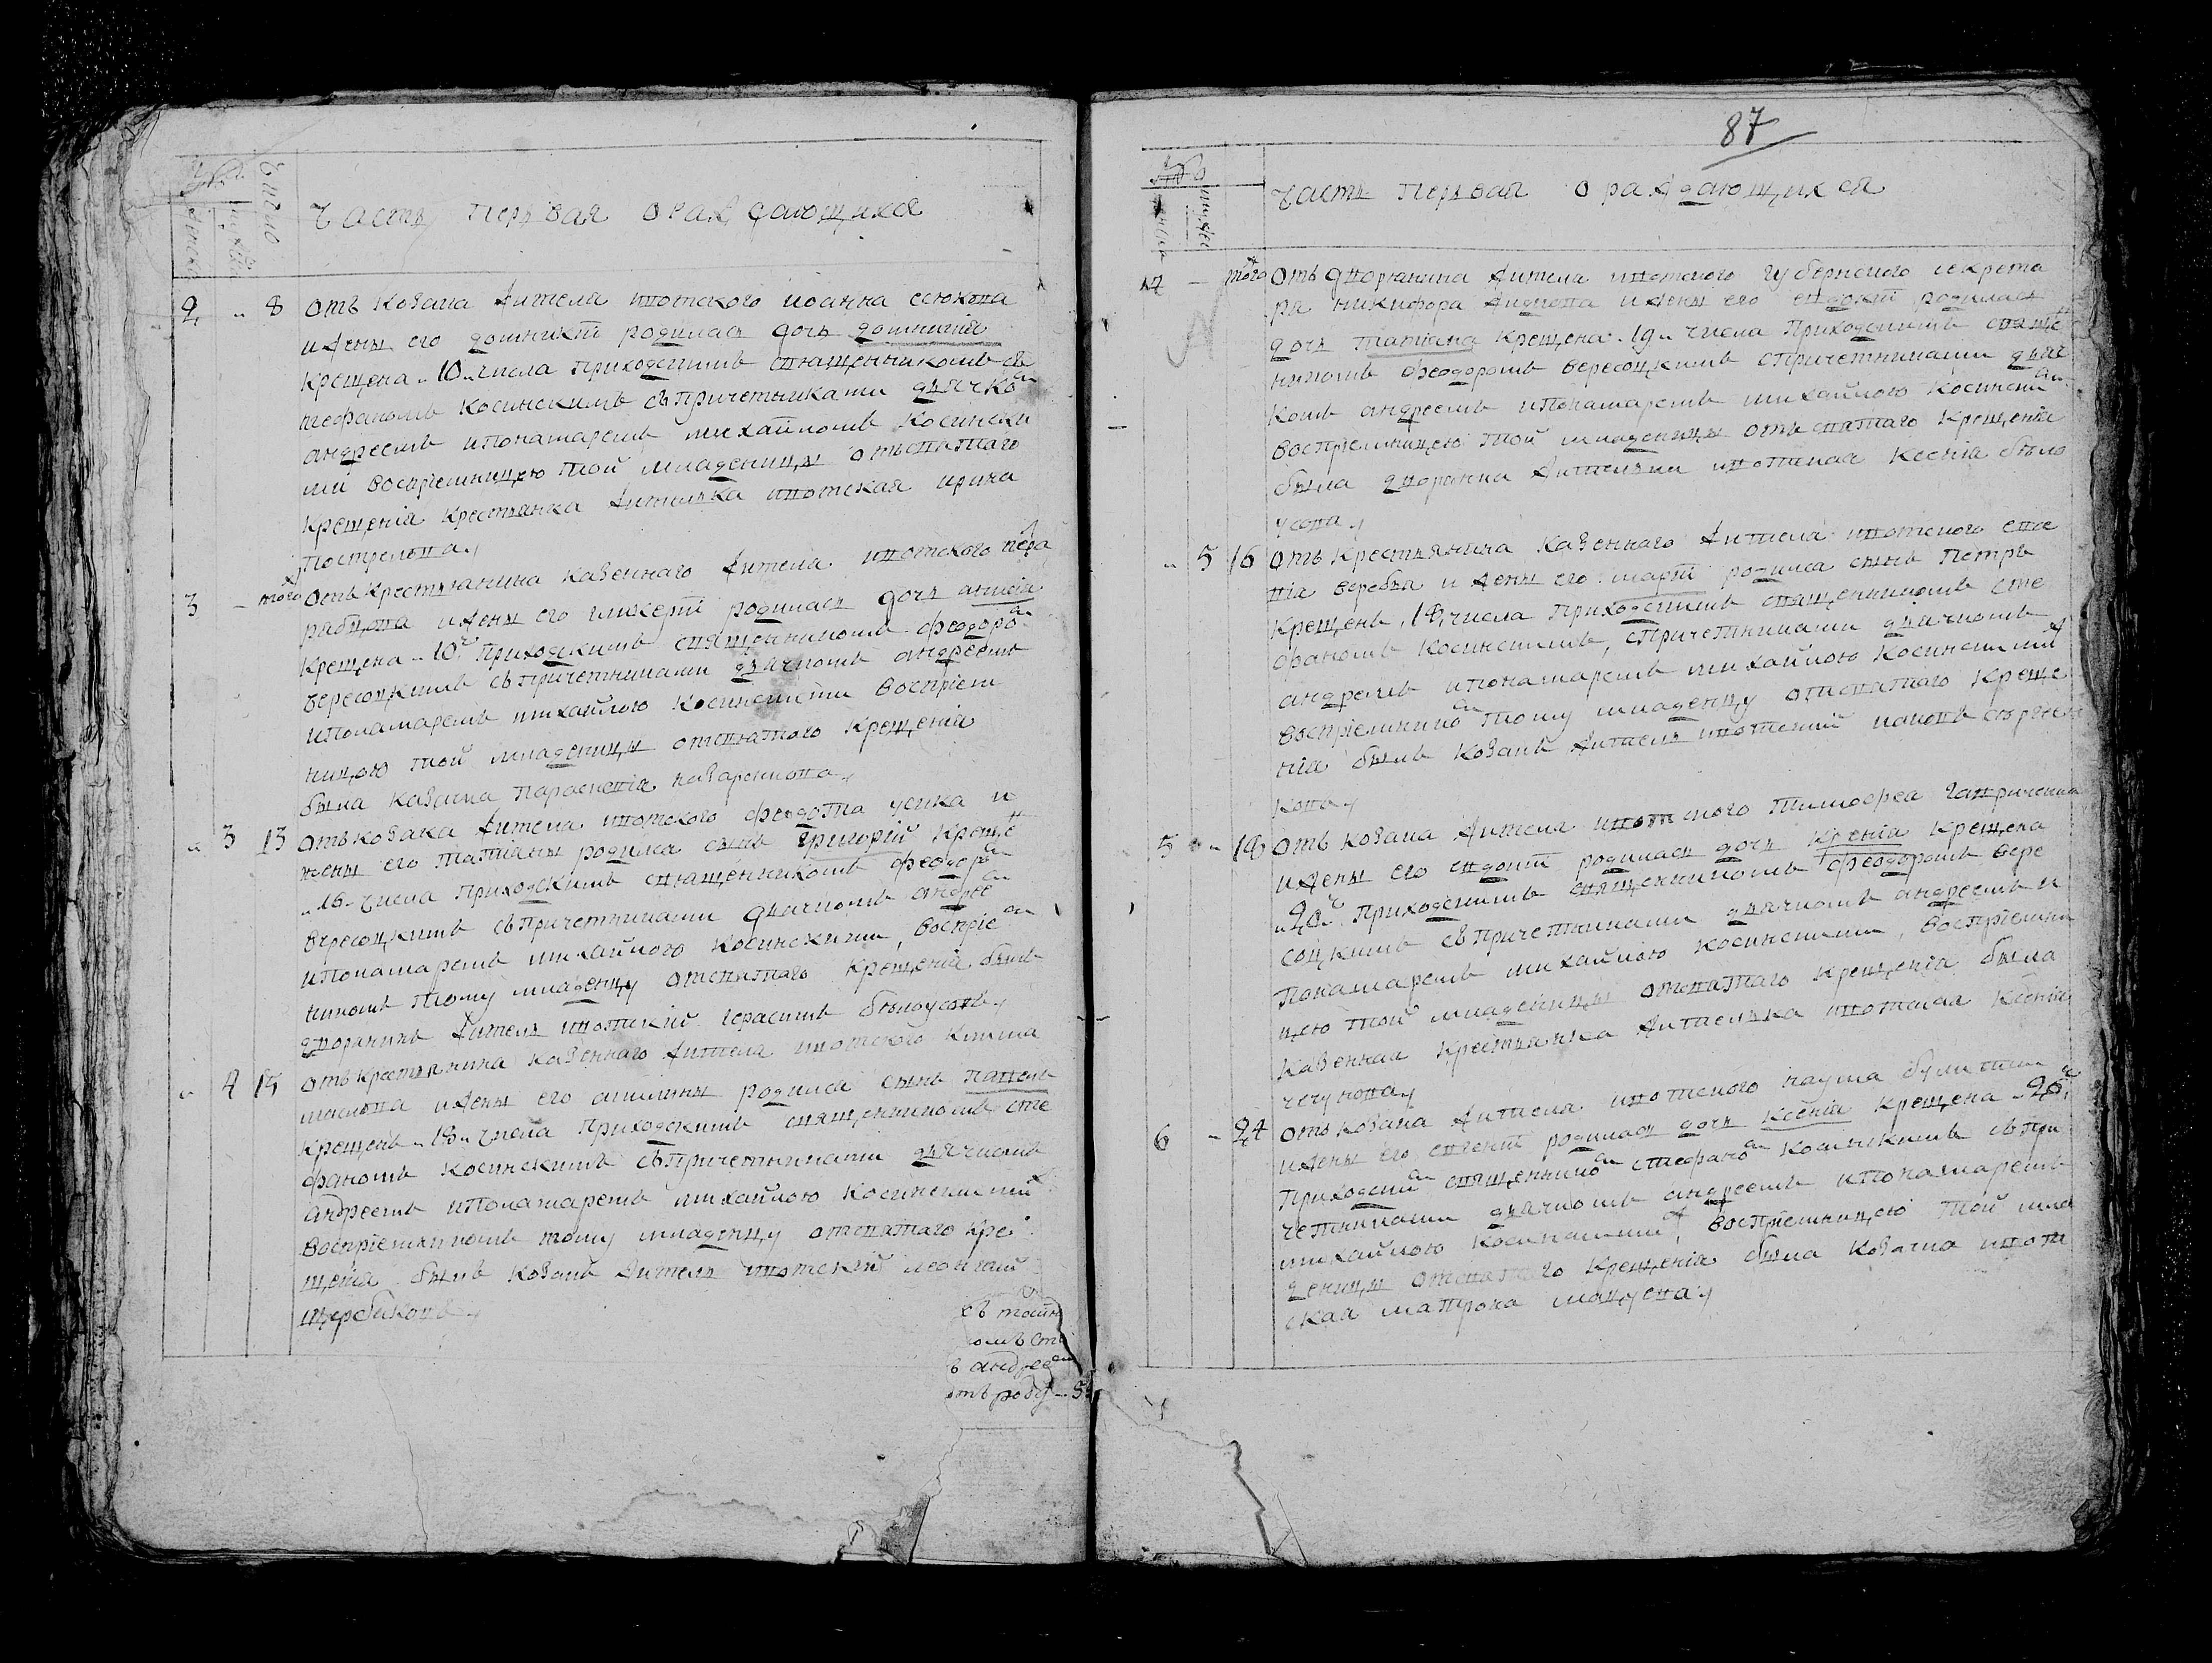 Часть первая о раждающихся
2 „ 8 Отъ козака жителя ивотского иоанна есюкова
и жены его домникіи родилась дочь домникія
крещена „ 10 „ числа приходскимъ священникомъ с
тефаномъ косинскимъ съ причетниками дьячко
андреемъ и понамаремъ михайломъ косински
ми воспріемницею той младеницы отъ святаго
крещенія крестьянка жителька ивотская ирина
пострелова
3 – того Отъ крестьянина казеннаго жителя ивотского
и жены его гликеріи родилась дочь анисія
крещена „ 10 ч приходскимъ священникомъ феодоро
вересоцкимъ съ причетниками дьячкомъ андреемъ
и понамаремъ михайлою косинскими воспріем
ницою той младеницы отъ святаго крещенія
была козачка параскевія
„ 3 13 Отъ козака жителя ивотского феодота усика и
жены его татіаны родился сынъ григорій креще
„ 16 „ числа приходскимъ священникомъ феодоро
вересоцкимъ съ причетниками дьячкомъ андрее
и понамаремъ михайлою косинскими, воспріе
никомъ тому младенцу отъ святаго крещенія былъ
дворянинъ житель ивотскій герасимъ белоусовъ
„ 4 15 Отъ крестьянина казеннаго жителя ивотского клима
маслова и жены его акилины родился сынъ павелъ
крещенъ „ 18 „ числа приходскимъ священникомъ сте
фаномъ косинскимъ съ причетниками дьячкомъ
андреемъ и понамаремъ михайлою косинскими
воспріемникомъ тому младенцу отъ святаго кре
щенія былъ козакъ житель ивотскій леонтій
щербаковъ
87
Часть первая о раждающихся
4 – того Отъ дворянина жителя ивотского губернского секрета
ря никифора и жены его евдокіи родилась
дочь татіана крещена „ 19 „ числа приходскимъ свяще
никомъ феодоромъ вересоцкимъ с причетниками дьяч
комъ андреемъ и понамаремъ михайлою косински
воспріемницею той младеницы отъ святаго крещенія
была дворянка жителька ивотская ксенія бело
усова
„ 5 16 Отъ крестьянина казеннаго жителя ивотского
и жены его марфи родился сынъ петръ
крещенъ „ 18 числа приходскимъ священникомъ сте
фаномъ косинскимъ, с причетниками дьячкомъ
андреемъ и понамаремъ михайлою косинскими
воспріемнико тому младенцу отъ святаго креще
нія былъ козакъ житель ивотскій
кова
5 „ 18 Отъ козака жителя ивотского тимофея гавриченка
и жены его евдокіи родилась дочь ксенія крещена
„ 20 ч приходскимъ священникомъ феодоромъ вере
соцкимъ съ причетниками дьячкомъ андреемъ и
понамаремъ михайлою косинскими, воспріемни
цею той младеницы отъ святаго крещенія была
казенная крестьянка жителька ивотская ксенія
чечукова
6 – 24 Отъ козака жителя ивотского наума
и жены его родилась дочь ксенія крещена „ 26 ч
приходски священнико стефано косинскимъ съ при
четниками дьячкомъ андреемъ и понамаремъ
михайлою косинскими, воспріемницею той мла
деницы отъ святаго крещенія была козачка ивот
ская матрона мацуева